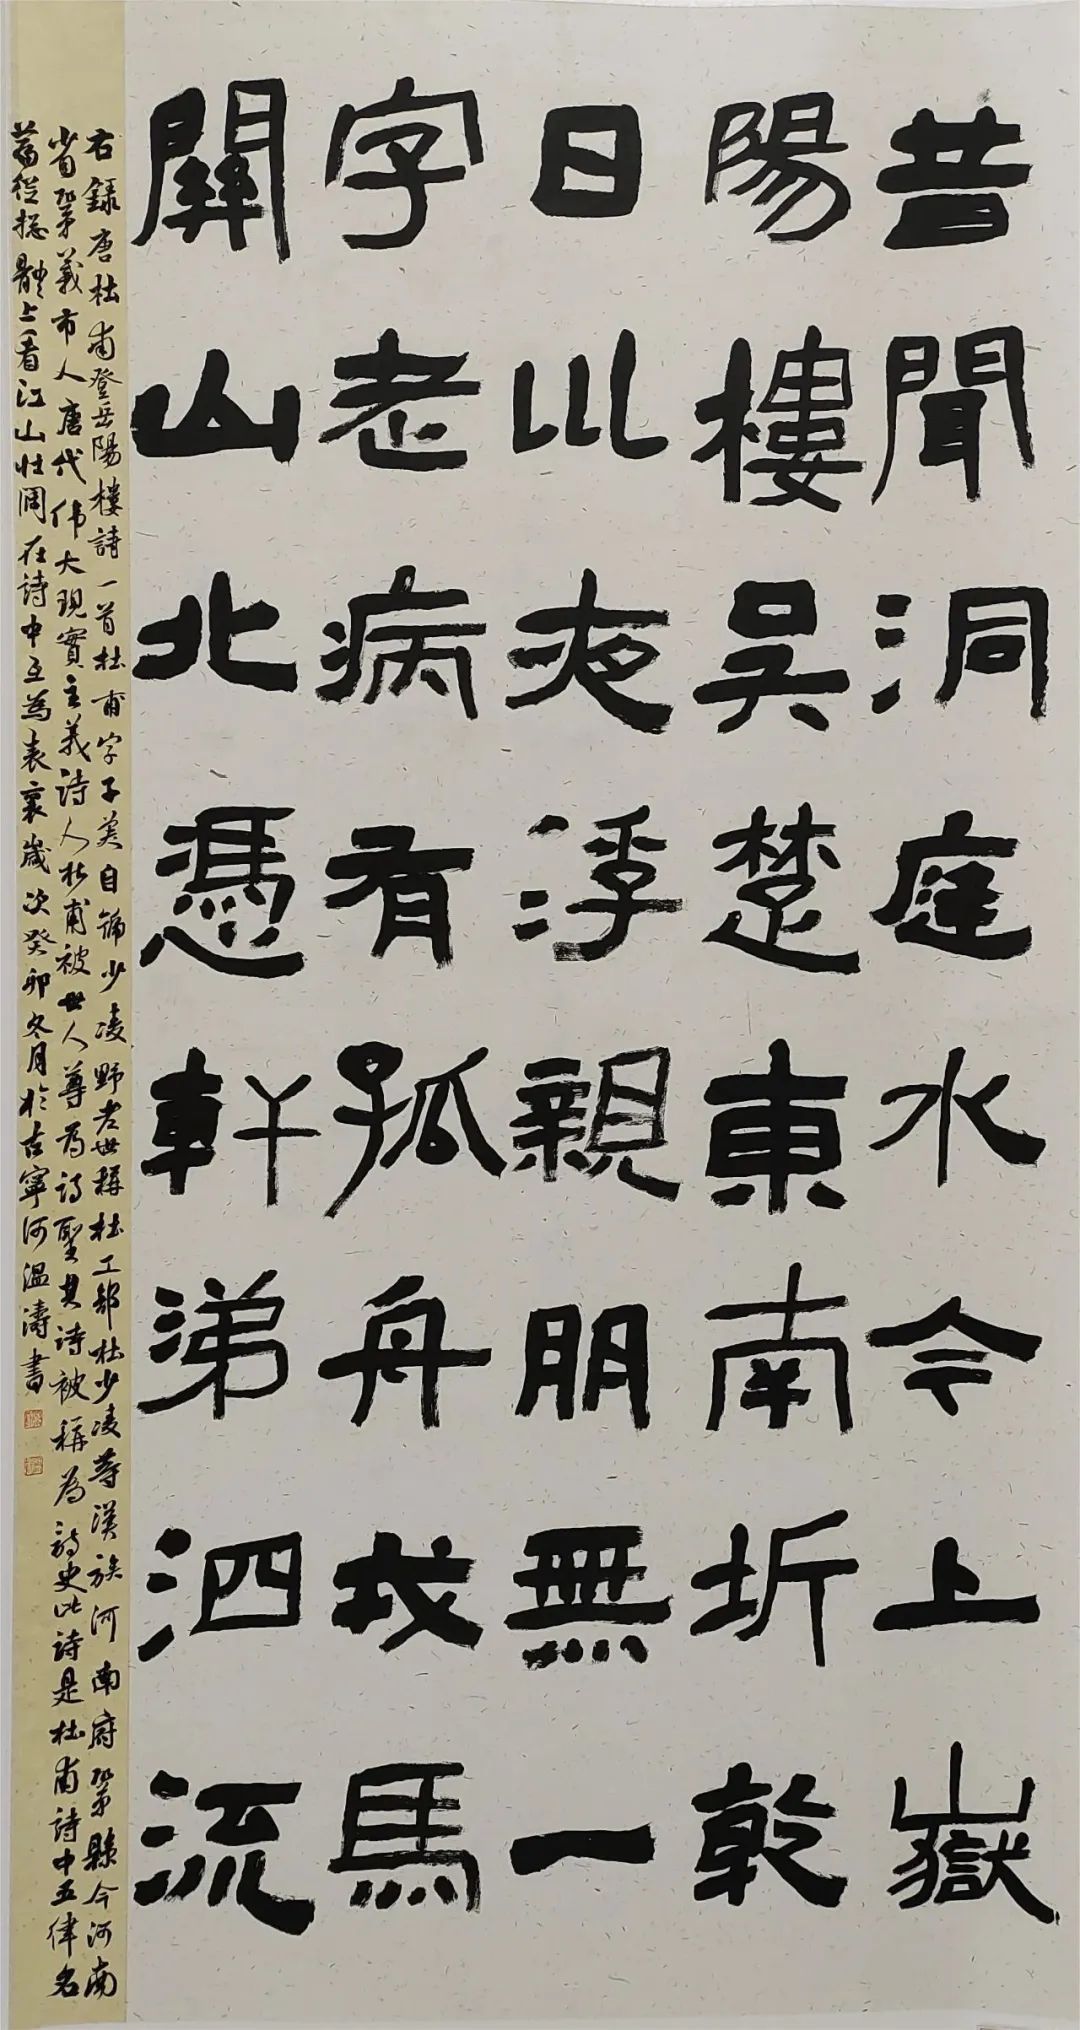 昔聞洞庭水今上嶽
陽樓吳楚東南坼乾
日巛夜浮親朋無一
字老病有孤舟戎馬
關山北憑軒涕泗流
右録唐杜甫登岳陽樓詩一首杜甫字子美自號少凌野老世稱杜工部杜少凌等漢族河南府鞏縣今河南
省鞏義市人唐代偉大現實主義詩人杜甫被世人尊為詩聖其詩被稱為詩史此詩是杜甫詩中五律名
篇從總體上看江山壯阔在詩中互為表裏歲次癸卯冬月於古寧河溫濤書